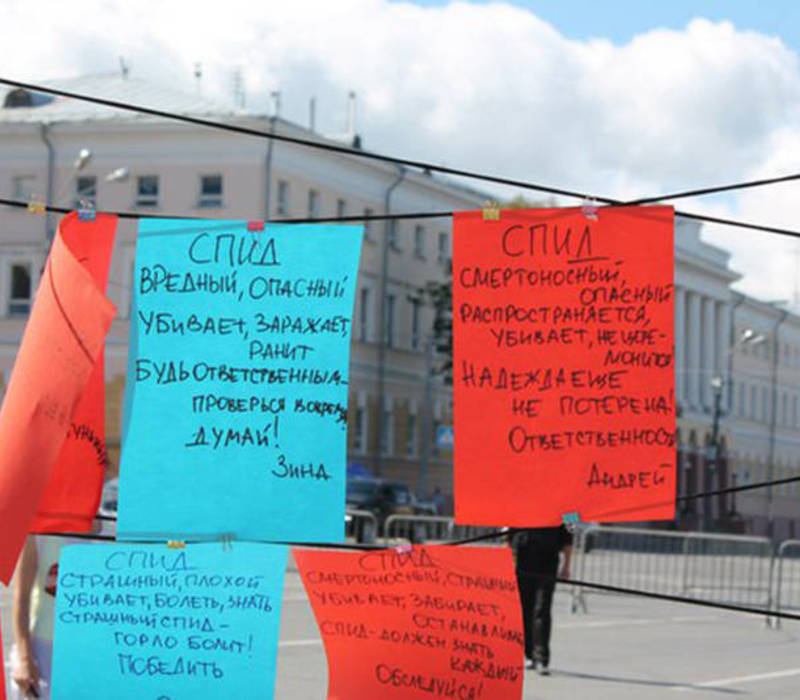 СПИД
ВРЕДНЫЙ, ОПАСНЫЙ
УБИВАЕТ, ЗАРАЖАЕТ,
РАНИТ
БУДЬ ОТВЕТСТВЕННЫМ-
ПРОВЕРЬСЯ ВОВРЕМЯ!
ДУМАЙ!
ЗИНА
СПИД
СМЕРТОНОСНЫЙ,
ОПАСНЫЙ
РАСПРОСТРАНЯЕТСЯ,
УБИВАЕТ, НЕ ЦЕРЕ-
МОНИТСЯ
НАДЕЖДА ЕЩЕ
НЕ ПОТЕРЕНА!
ОТВЕТСТВЕННОСТ
АНДРЕЙ
СПИД
СТРАШНЫЙ, ПЛОХОЙ
УБИВАЕТ, БОЛЕТЬ, ЗНАТЬ
СТРАШНЫЙ СПИД -
ГОРЛО БОЛИТ!
ПОБЕДИТЬ
СПИД
СМЕРТОНОСНЫЙ, СТРАШНЫЙ
УБИВАЕТ, ЗАБИРАЕТ,
ОСТАНАВЛИВА
СПИД - ДОЛЖЕН ЗНАТЬ
КАЖДЫЙ
ОБСЛЕДУЙСЯ!